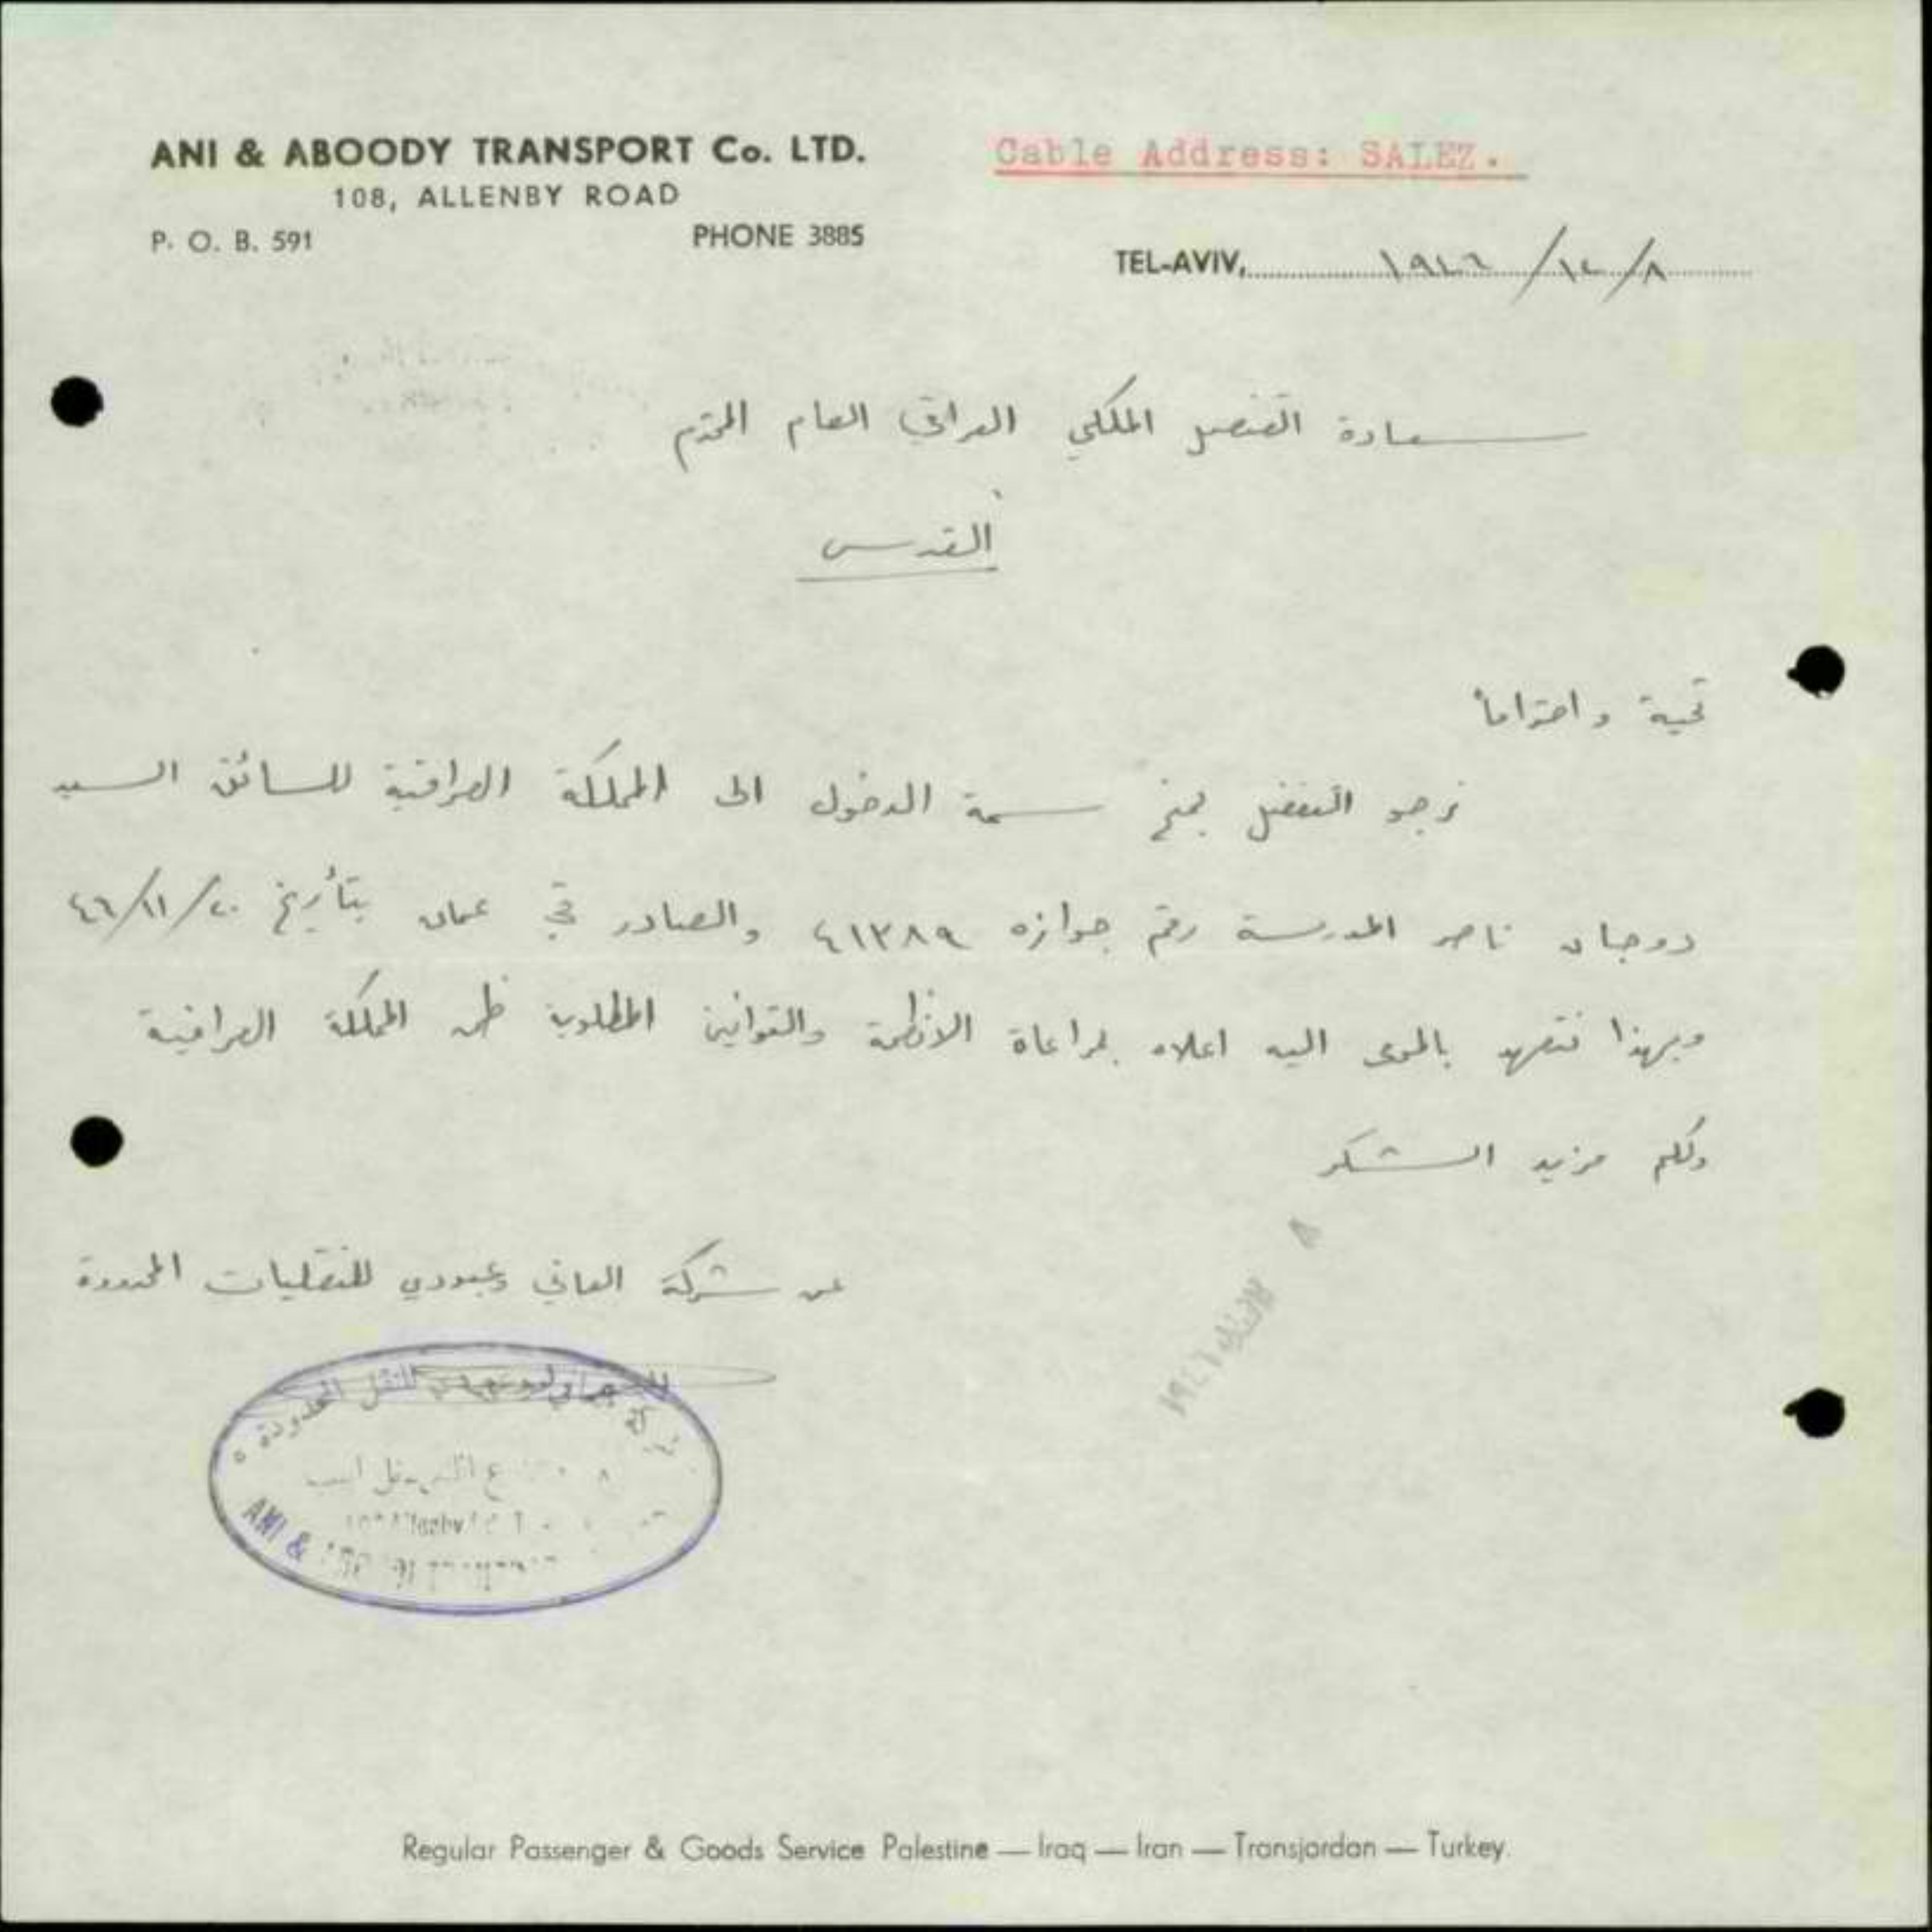 ANI & ABOODY TRANSPORT Co. LTD.
108, ALLENBY ROAD
P. O. B. 591 PHONE 3885
Cable Address: SALEZ.
TEL-AVIV, ٨/١٢/١٩٤٦
سعادة القنصل الملكي العراقي العام المحترم
القدس
تحية واحتراماً
نرجو التفضل بمنح سمة الدخول الى المملكة العراقية للسائق السيد
ناصر المدرسة رقم جوازه ٤١٣٨٩ والصادر في عمان بتأريخ ٢٠/١١/٤٦
وبهذا نتعهد بالمومى اليه اعلاه بمراعاة الانظمة والقوانين المطلوبة ضمن المملكة العراقية
ولكم مزيد الشكر
عن شركة العاني وعبودي للنقليات المحدودة
شركة للنقل المحدودة
ANI &
Regular Passenger & Goods Service Palestine — Iraq — Iran — Transjordan — Turkey.